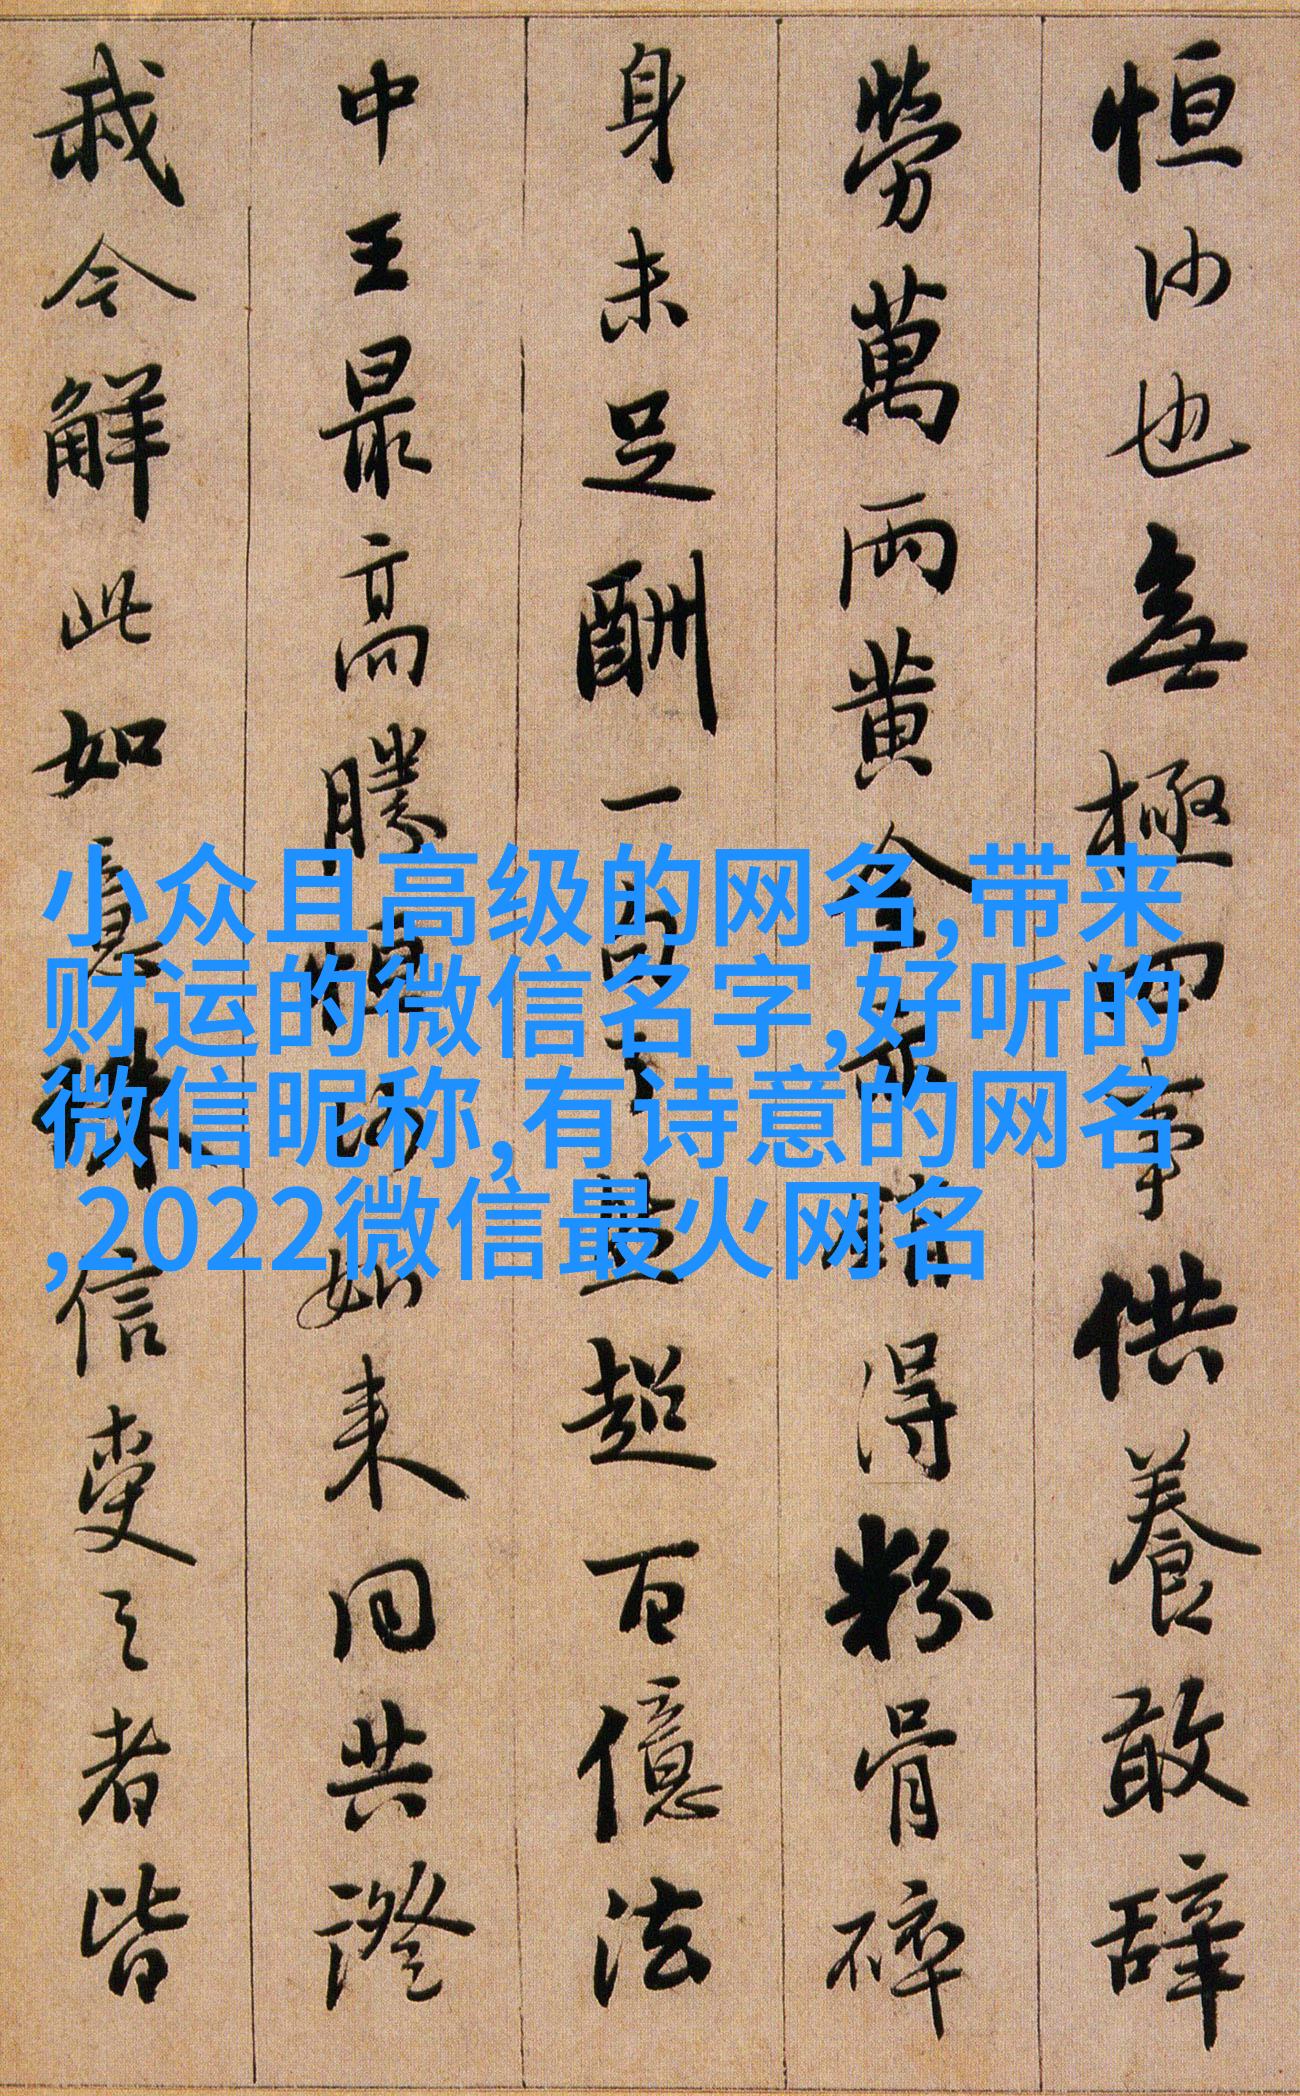 恒沙也無極四事供養敢辞
勞萬兩黄金亦銷得粉骨碎
身未足酬一句了然超百億法
中王最高勝恒沙如来同共證
我今解此如意珠信受之者皆
小众且高级的网名,带来
财运的微信名字,好听的
微信昵称,有诗意的网名
,2022微信最火网名